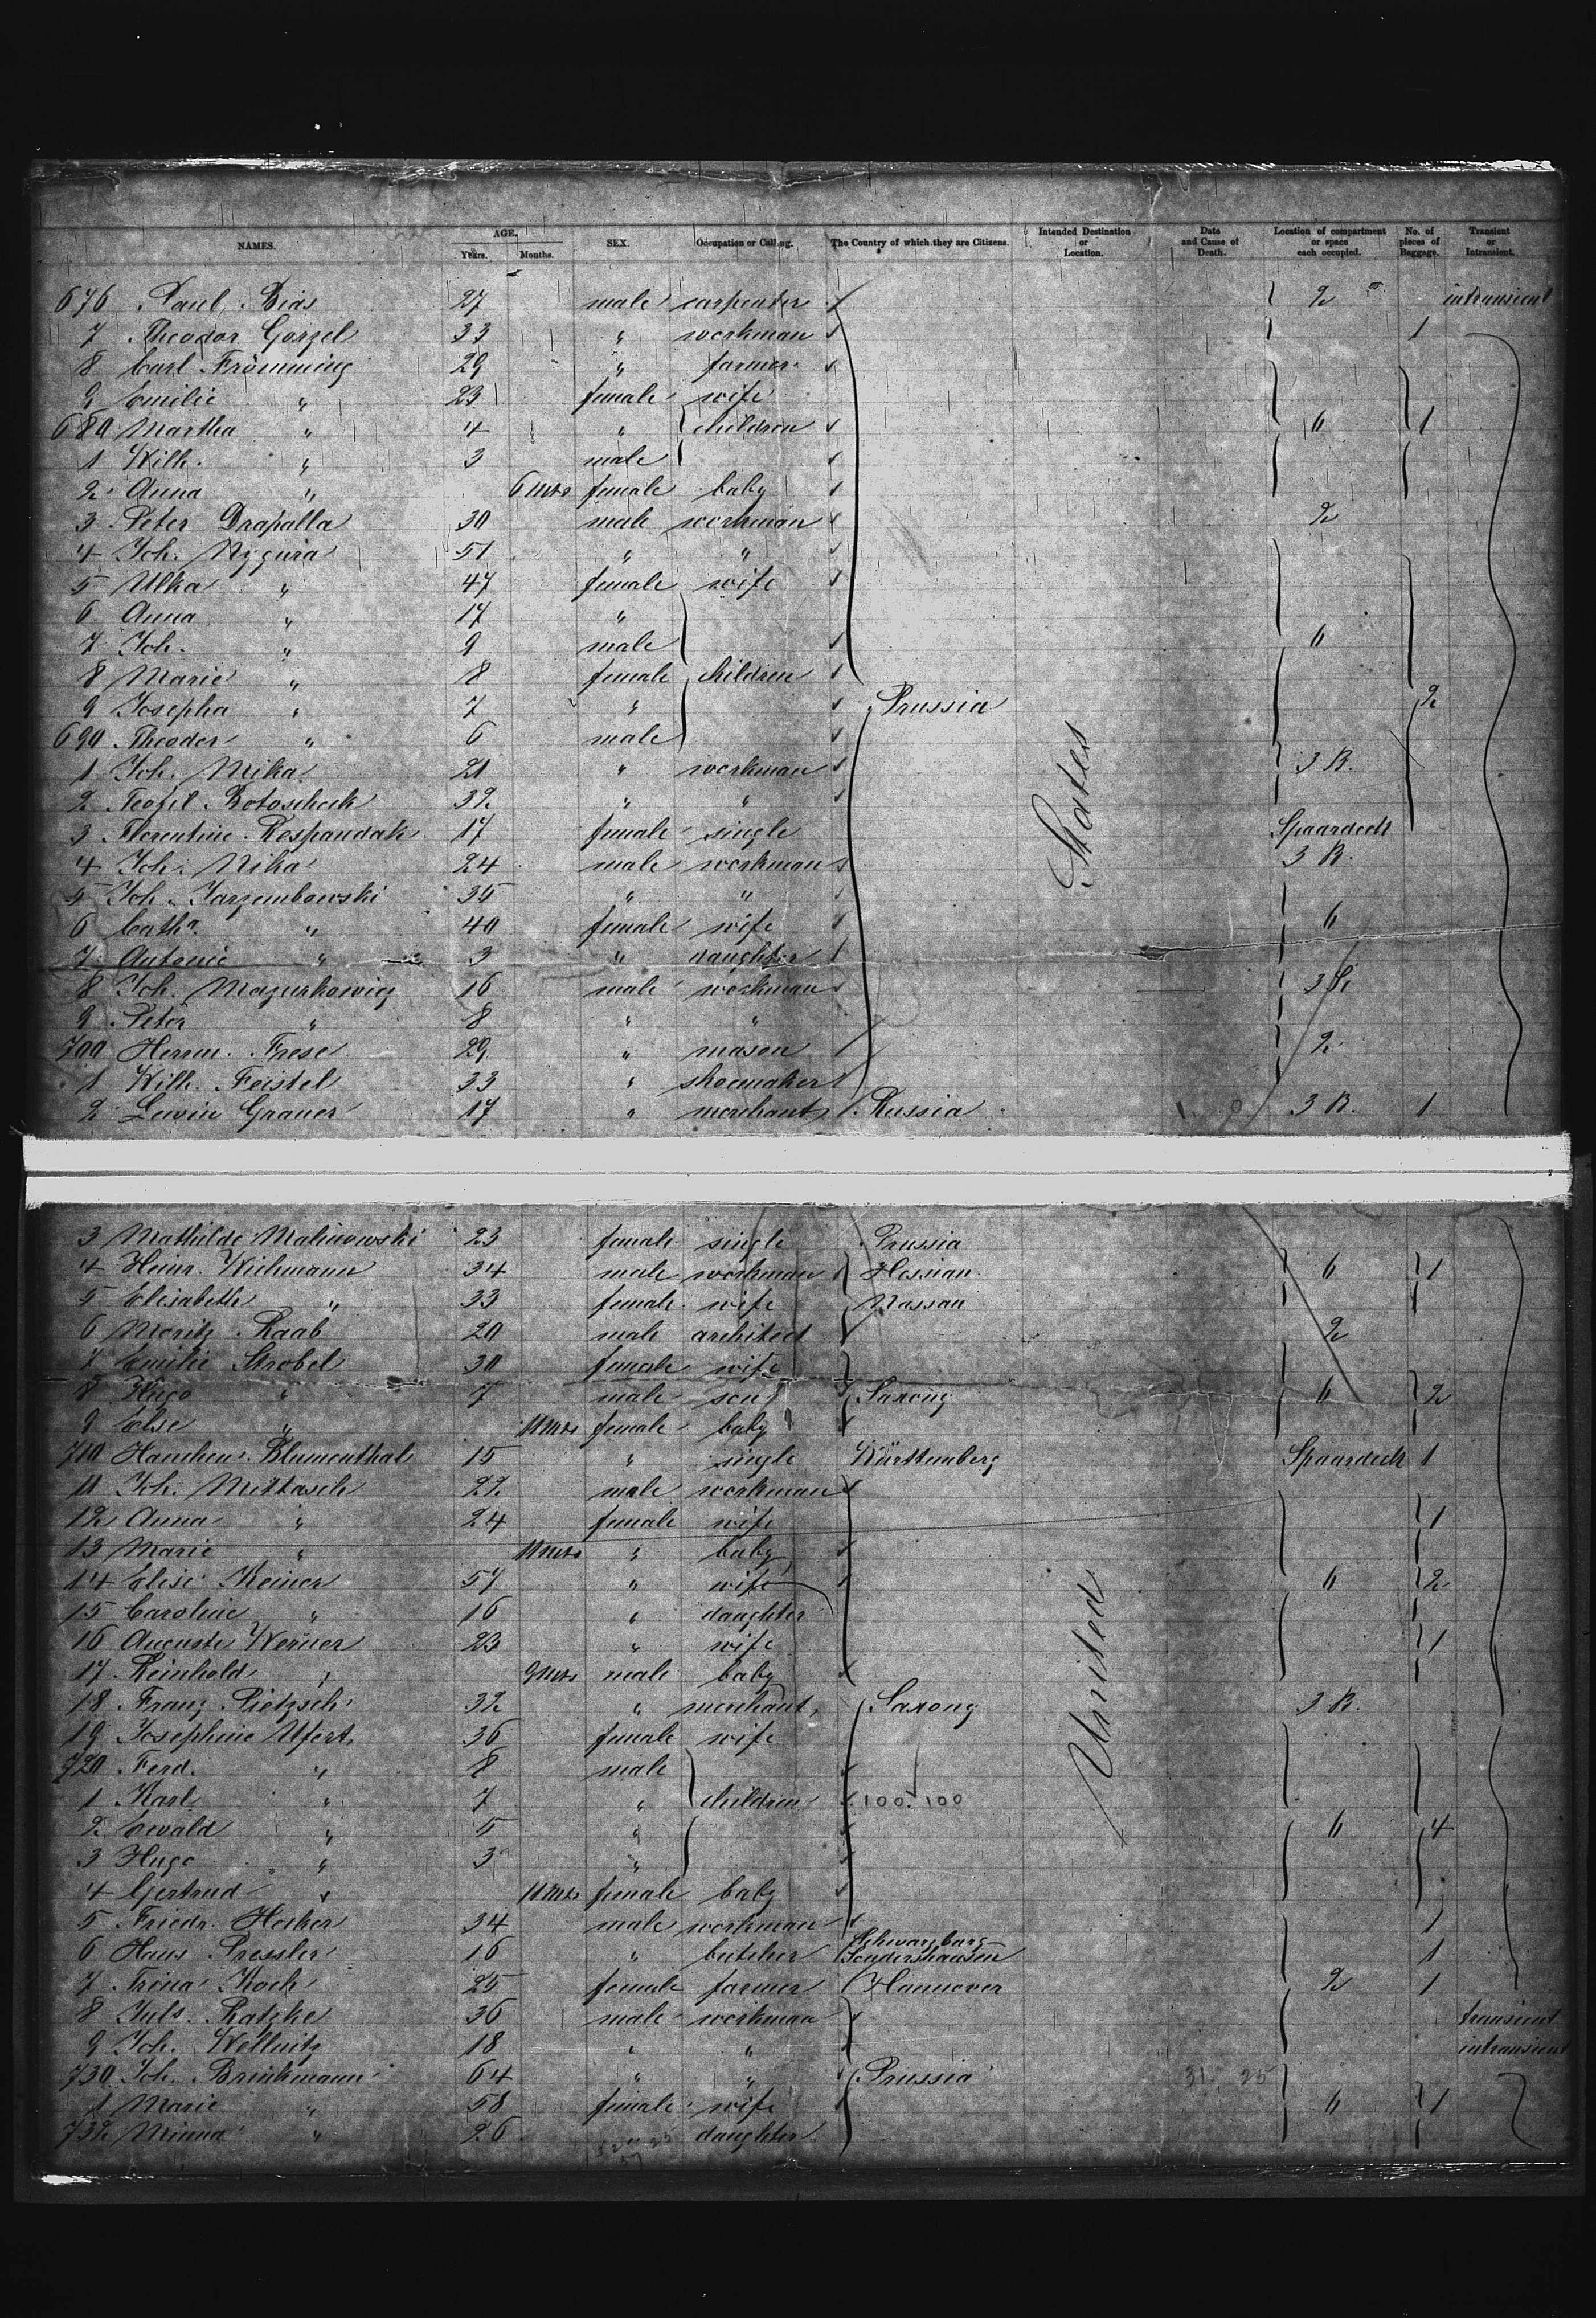 NAMES. AGE. Years. Months. SEX. Occupation or Calling. The Country of which they are Citizens. Intended Destination or Location. Date and Cause of Death. Location of compartment or space each occupied. No. of pieces of Baggage. Transient or Intransient.
676 Paul Bias 27 male carpenter 2 intransient
7 Theodor Gorzel 33 " workman 1
8 Carl Frömming 29 " farmer
9 Emilie " 23 female wife
680 Martha " 4 " children 6 1
1 Wilh. " 3 male
2 Anna " 6 mts female baby
3 Peter Drapalla 30 male workman 2
4 Joh. Nygura 51 " "
5 Ulka " 47 female wife
6 Anna " 17 "
7 Joh. " 9 male 6
8 Marie " 8 female children
9 Josepha " 7 " Prussia 2
690 Theodor " 6 male
1 Joh. Mika 21 " workman 3 B.
2 Teofil Botoscheck 32 " "
3 Florentine Respandak 17 female single Spaardeck
4 Joh. Nika 24 male workman 3 B. States
5 Joh. Jarzembowski 35 " "
6 Cathe. " 40 female wife 6
7 Antonie " 3 " daughter
8 Joh. Mazurkowicz 16 male workman
9 Peter " 8 " "
700 Herrm. Frese 29 " mason 2
1 Wilh. Feistel 33 " shoemaker
2 Lewin Graner 17 " merchant Russia 3 B. 1
3 Mathilde Malinowski 23 female single Prussia
4 Heinr. Wichmann 34 male workman Hessian 6 1
5 Elisabeth " 33 female wife Nassau
6 Moritz Raab 20 male architect 2
7 Emilie Strobel 30 female wife
8 Hugo " 7 male son Saxony 6 2
9 Else " 11 mts female baby
710 Hanchen Blumenthal 15 " single Württemberg Spaardeck 1
11 Joh. Mittasch 22 male workman
12 Anna " 24 female wife 1
13 Marie " 11 mts " baby
14 Elise Keiner 57 " wife 6 2
15 Caroline " 16 " daughter
16 Auguste Werner 23 " wife 1 United
17 Reinhold " 9 mts male baby
18 Franz Pietzsch 32 " merchant Saxony 3 B.
19 Josephine Ufert 36 female wife
720 Ferd. " 8 male
1 Karl " 7 " children 100. 100
2 Ewald " 5 " 6 4
3 Hugo " 3 "
4 Gertrud " 11 mts female baby
5 Friedr. Hecker 34 male workman 1
6 Hans Pressler 16 " butcher Schwarzburg Sondershausen 1
7 Trina Koch 25 female farmer Hannover 2 1
8 Juls. Ratzke 36 male workman transient
9 Joh. Wellnitz 18 " " intransient
730 Joh. Brinkmann 64 " " Prussia 31. 25
1 Marie " 58 female wife 6 1
732 Minna " 26 daughter